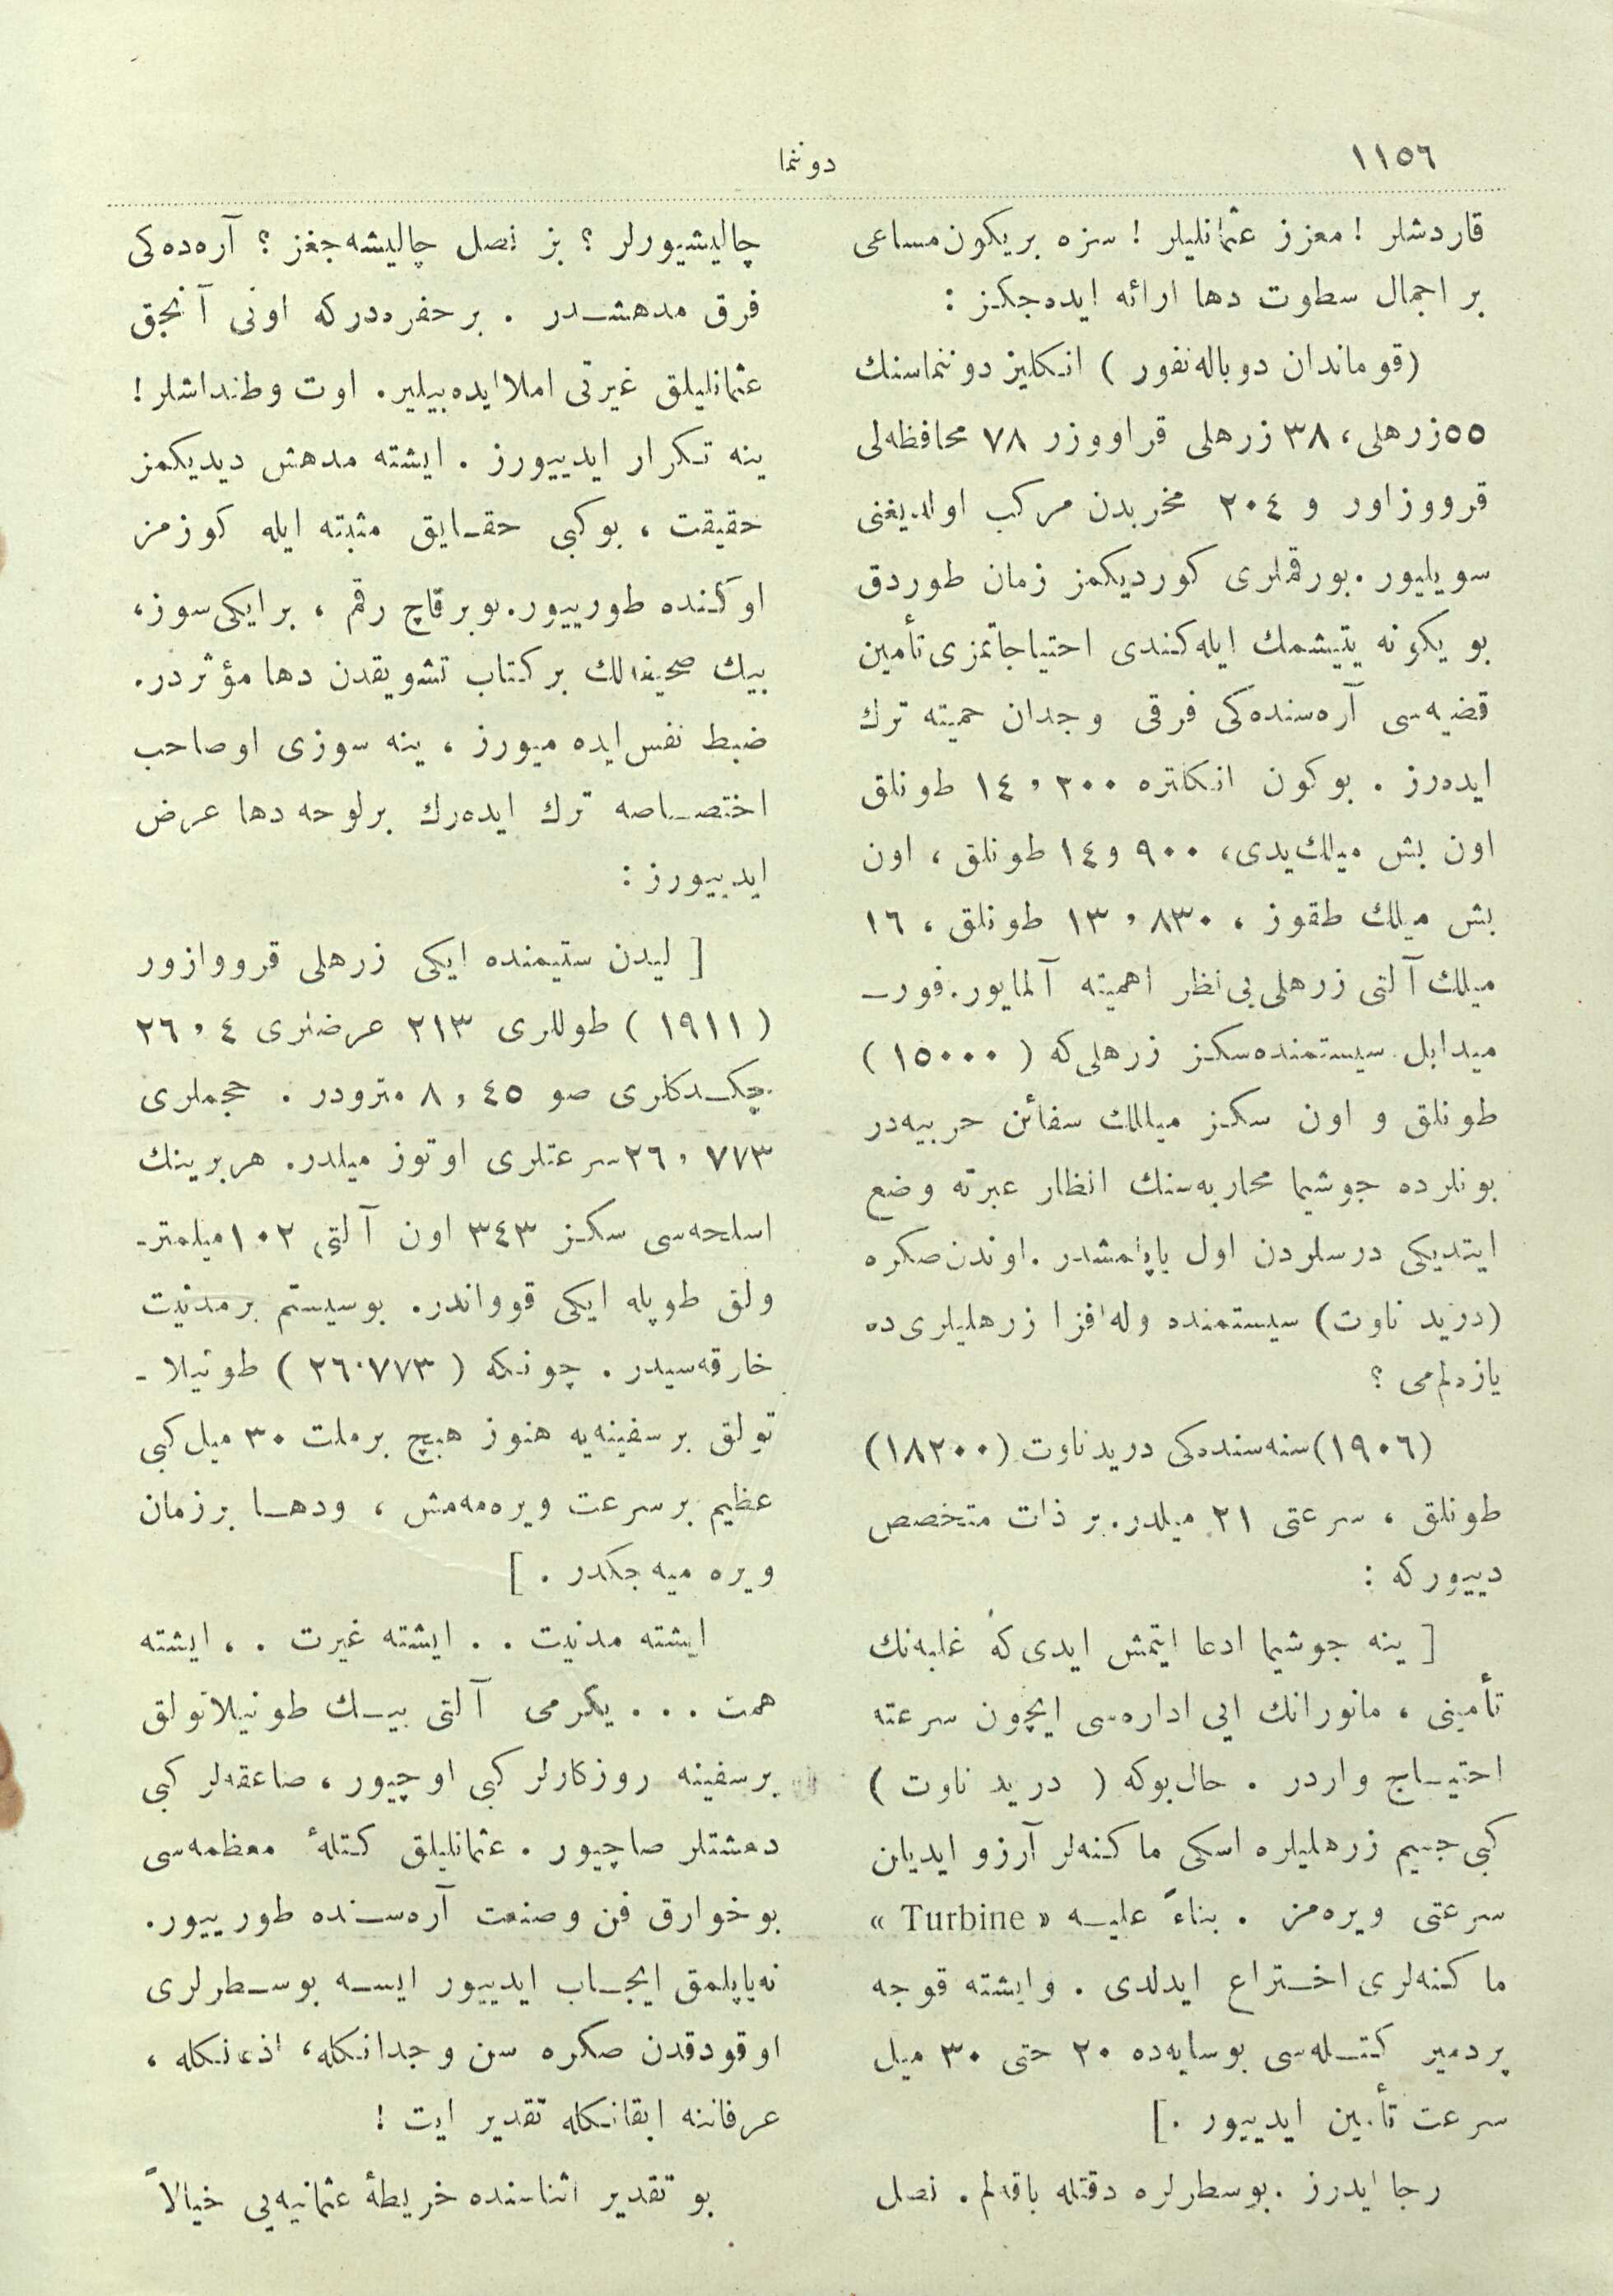 ١١٥٦
دوننما
قاردشلر ! معزز عثمانليلر ! سزه بريكون مساعی
بر اجمال سطوت دها ارائه ايده جكز :
(قوماندان دوباله نفور ) انكليز دوننماسنك
٥٥ زرهلی، ٣٨ زرهلی قراووزر ٧٨ محافظه لی
قرووزاور و ٢٠٤ مخربدن مركب اولديغنی
سويليور . بورقملری كورديكمز زمان طوردق
بو يكونه يتيشمك ايله كندی احتياجاتمزی تأمين
قضيه سی آره سنده كی فرقی وجدان حميته ترك
ايده رز . بوكون انكلتره ١٤,٢٠٠ طونلق
اون بش ميللك يدی، ٩٠٠ و١٤ طونلق ، اون
بش ميللك طقوز ، ١٣,٨٣٠ طونلق ، ١٦
ميللك آلتی زرهلی يی نظر اهميته آلمايور. فور ـ
ميدابل سيستمنده سكز زرهلی كه ( ١٥٠٠٠ )
طونلق و اون سكز ميللك سفائن حربيه در
بونلرده جوشيما محاربه سنك انظار عبرته وضع
ايتديكی درسلردن اول ياپلمشدر . اوندن صكره
(دريد ناوت) سيستمنده وله افزا زرهليلری ده
يازه لم می ؟
(١٩٠٦) سنه سنده كی دريدناوت (١٨٢٠٠)
طونلق ، سرعتی ٢١ ميلدر. بر ذات متخصص
دييوركه :
[ ينه جوشيما ادعا ايتمش ايدی كه غلبه نك
تأمينی ، مانورانك ايی اداره سی ايچون سرعته
احتيـاج واردر . حال بوكه ( دريد ناوت )
كبی جسيم زرهليلره اسكی ماكنه لر آرزو ايديلن
سرعتی ويره مز . بناءً عليـه « Turbine »
ماكنه لری اختراع ايدلدی . وايشته قوجه
بردمير كتـله سی بوسايه ده ٢٠ حتی ٣٠ ميل
سرعت تأمين ايدييور .]
رجا ايدرز . بوسطرلره دقتله باقه لم . نصل
چاليشيورلر ؟ بز نصل چاليشه جغز ؟ آره ده كی
فرق مدهشـدر . برحفره دركه اونی آنجق
عثمانليلق غيرتی املا ايده بيلير. اوت وطنداشلر !
ينه تكرار ايدييورز . ايشته مدهش ديديكمز
حقيقت ، بوكبی حقـايق مثبته ايله كوزمز
اوكنده طورييور. بوبرقاچ رقم ، برايكی سوز،
بيك صحيفه لك بركتاب تشويقدن دها مؤثردر.
ضبط نفس ايده ميورز ، ينه سوزی اوصاحب
اختصـاصه ترك ايده رك برلوحه دها عرض
ايدييورز :
[ ليدن ستيمنده ايكی زرهلی قرووازور
( ١٩١١ ) طوللری ٢١٣ عرضلری ٢٦,٤
چكـدكلری صو ٨,٤٥ مترودر . حجملری
٢٦,٧٧٣ سرعتلری اوتوز ميلدر. هربرينك
اسلحه سی سكز ٣٤٣ اون آلتی ١٠٢ ميلمتر-
ولق طوپله ايكی قوواندر. بوسيستم برمدنيت
خارقه سيدر . چونكه ( ٢٦٠٧٧٣ ) طونيلا -
تولق برسفينه يه هنوز هيچ برملت ٣٠ ميل كبی
عظيم برسرعت ويره مه مش ، ودهـا برزمان
ويره ميه جكدر . ]
ايشته مدنيت . . ايشته غيرت . . ، ايشته
همت . . . يكرمی آلتی بيـك طونيلاتولق
برسفينه روزكارلر كبی اوچيور ، صاعقه لر كبی
دهشتلر صاچيور . عثمانليلق كتلهٔ معظمه سی
بوخوارق فن وصنعت آره سـنده طورييور.
نه ياپلمق ايجـاب ايدييور ايسـه بوسـطرلری
اوقودقدن صكره سن وجدانكله، اذعانكله ،
عرفاننه ايقانـكله تقدير ايت !
بو تقدير اثناسنده خريطهٔ عثمانيه يی خيالاً